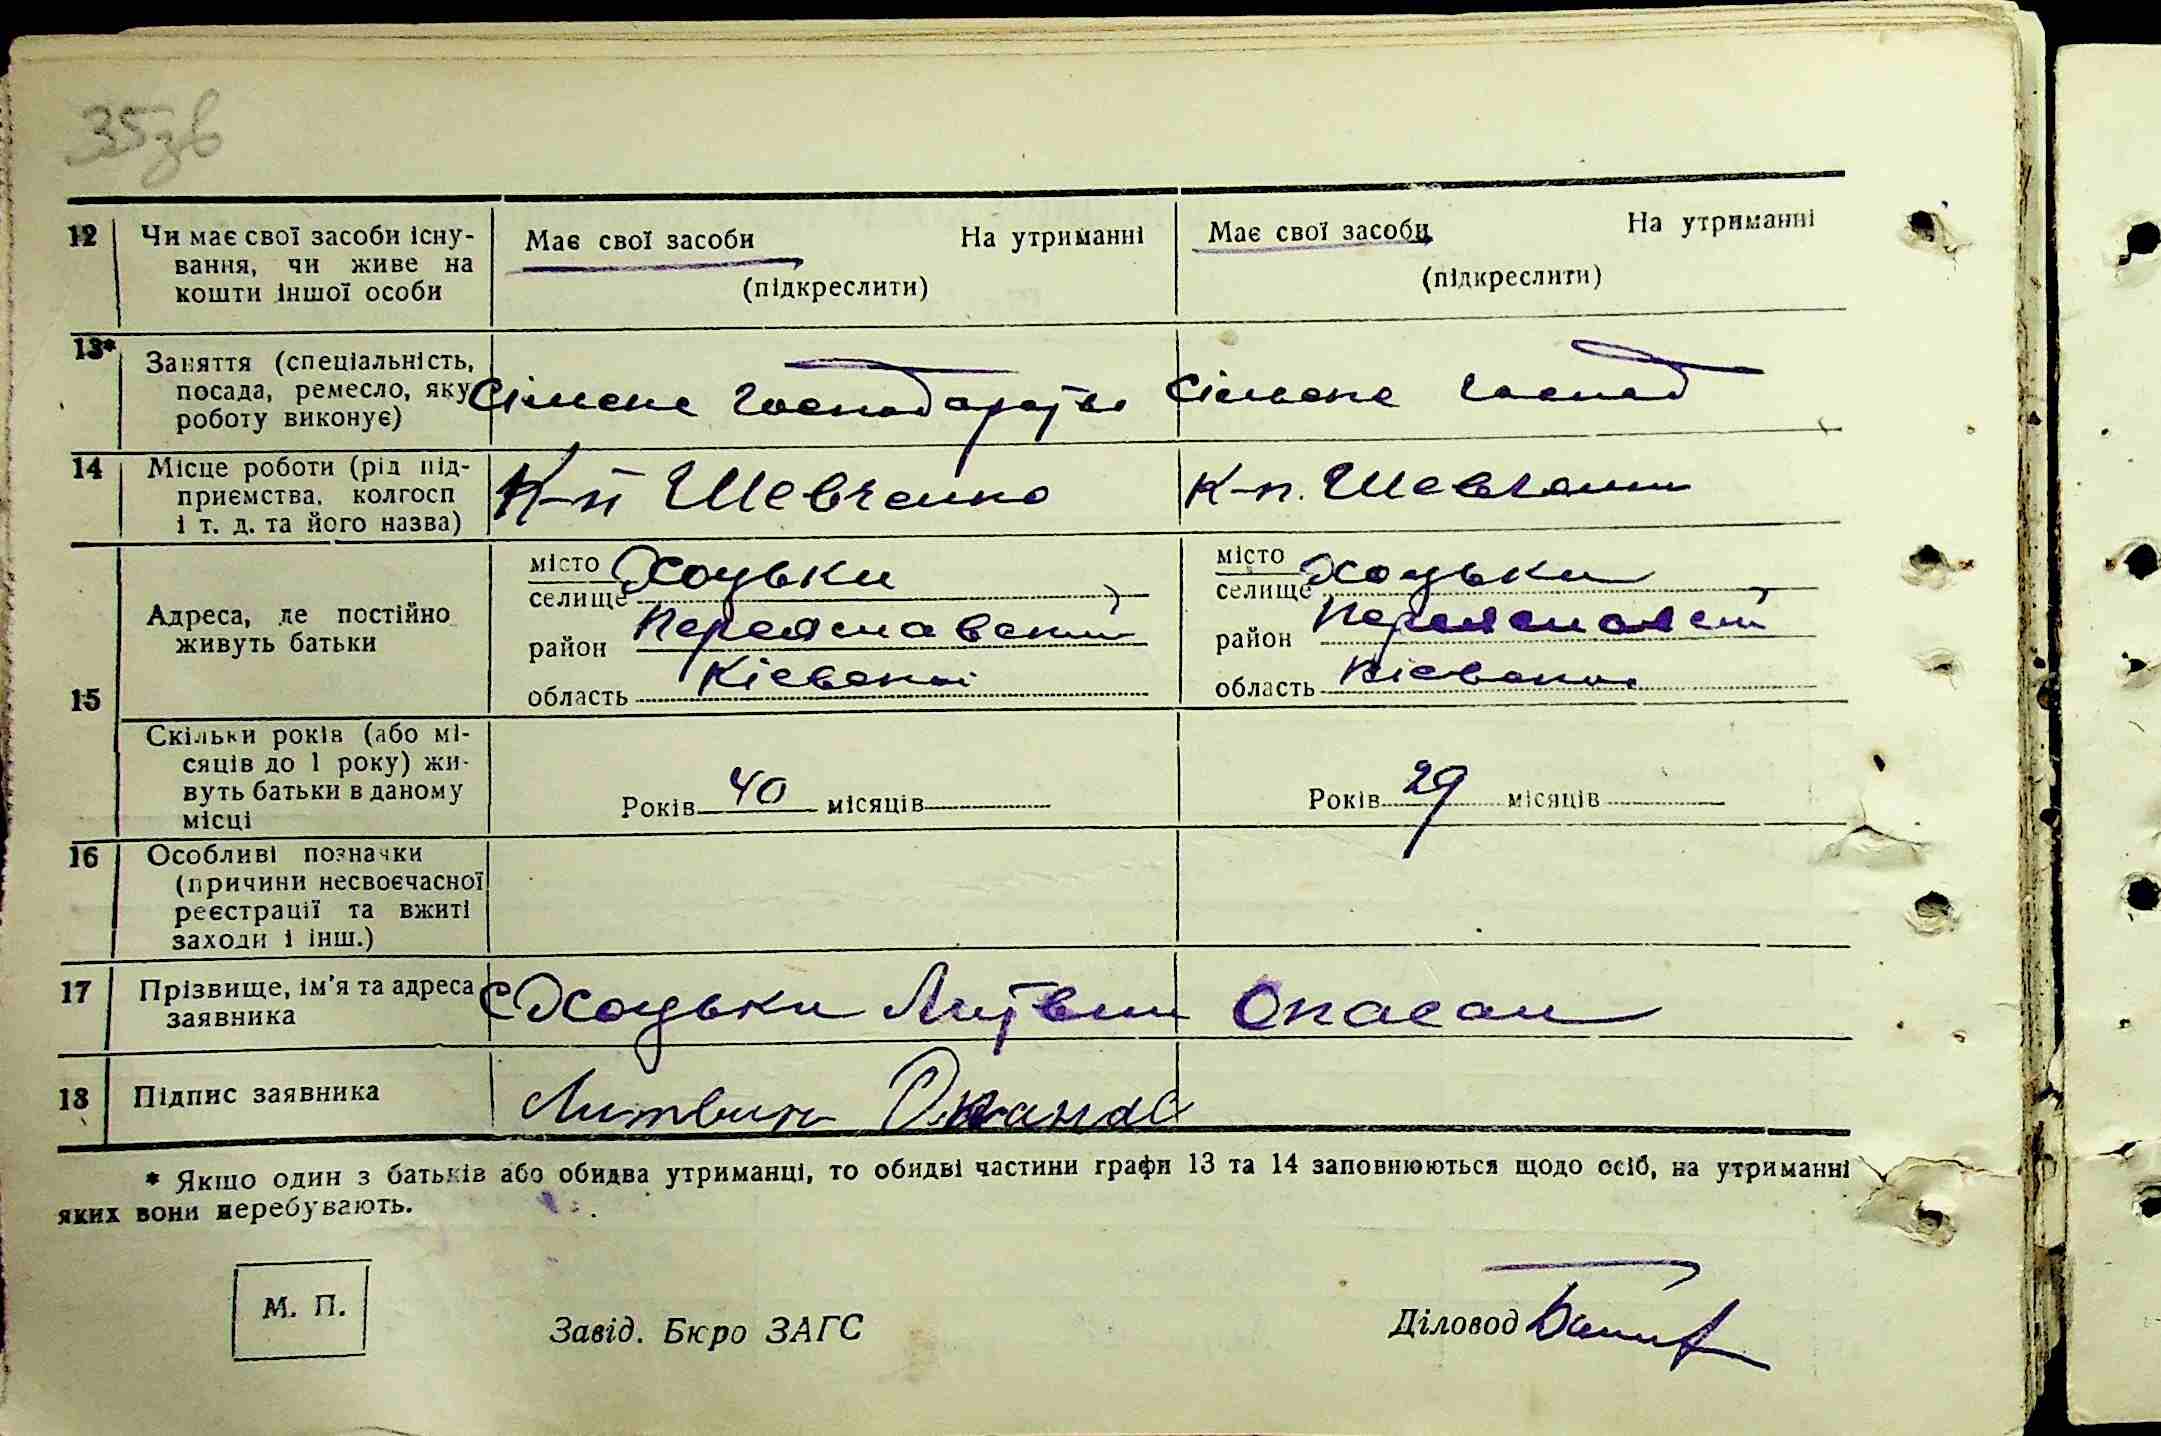 35зв
12 Чи має свої засоби існу-
вання, чи живе на
кошти іншої особи
Має свої засоби На утриманні
(підкреслити)
Має свої засоби На утриманні
(підкреслити)
13* Заняття (спеціальність,
посада, ремесло, яку
роботу виконує)
Сільске господарство
Сільске господ
14 Місце роботи (рід під-
приємства, колгосп
і т. д. та його назва)
К-п Шевченко
К-п. Шевченко
15
Адреса, де постійно
живуть батьки
місто
селище Хоцьки
район Переяславский
область Кіевскі
місто
селище Хоцьки
район
область
Скільки років (або мі-
сяців до 1 року) жи-
вуть батьки в даному
місці
Років 40 місяців
Років 29 місяців
16 Особливі позначки
(причини несвоєчасної
реєстрації та вжиті
заходи і інш.)
17 Прізвище, ім'я та адреса
заявника
с Хоцьки Литвин
18 Підпис заявника
Литвин Опанас
* Якщо один з батьків або обидва утриманці, то обидві частини графи 13 та 14 заповнюються щодо осіб, на утриманні
яких вони перебувають.
М. П.
Завід. Бюро ЗАГС
Діловод